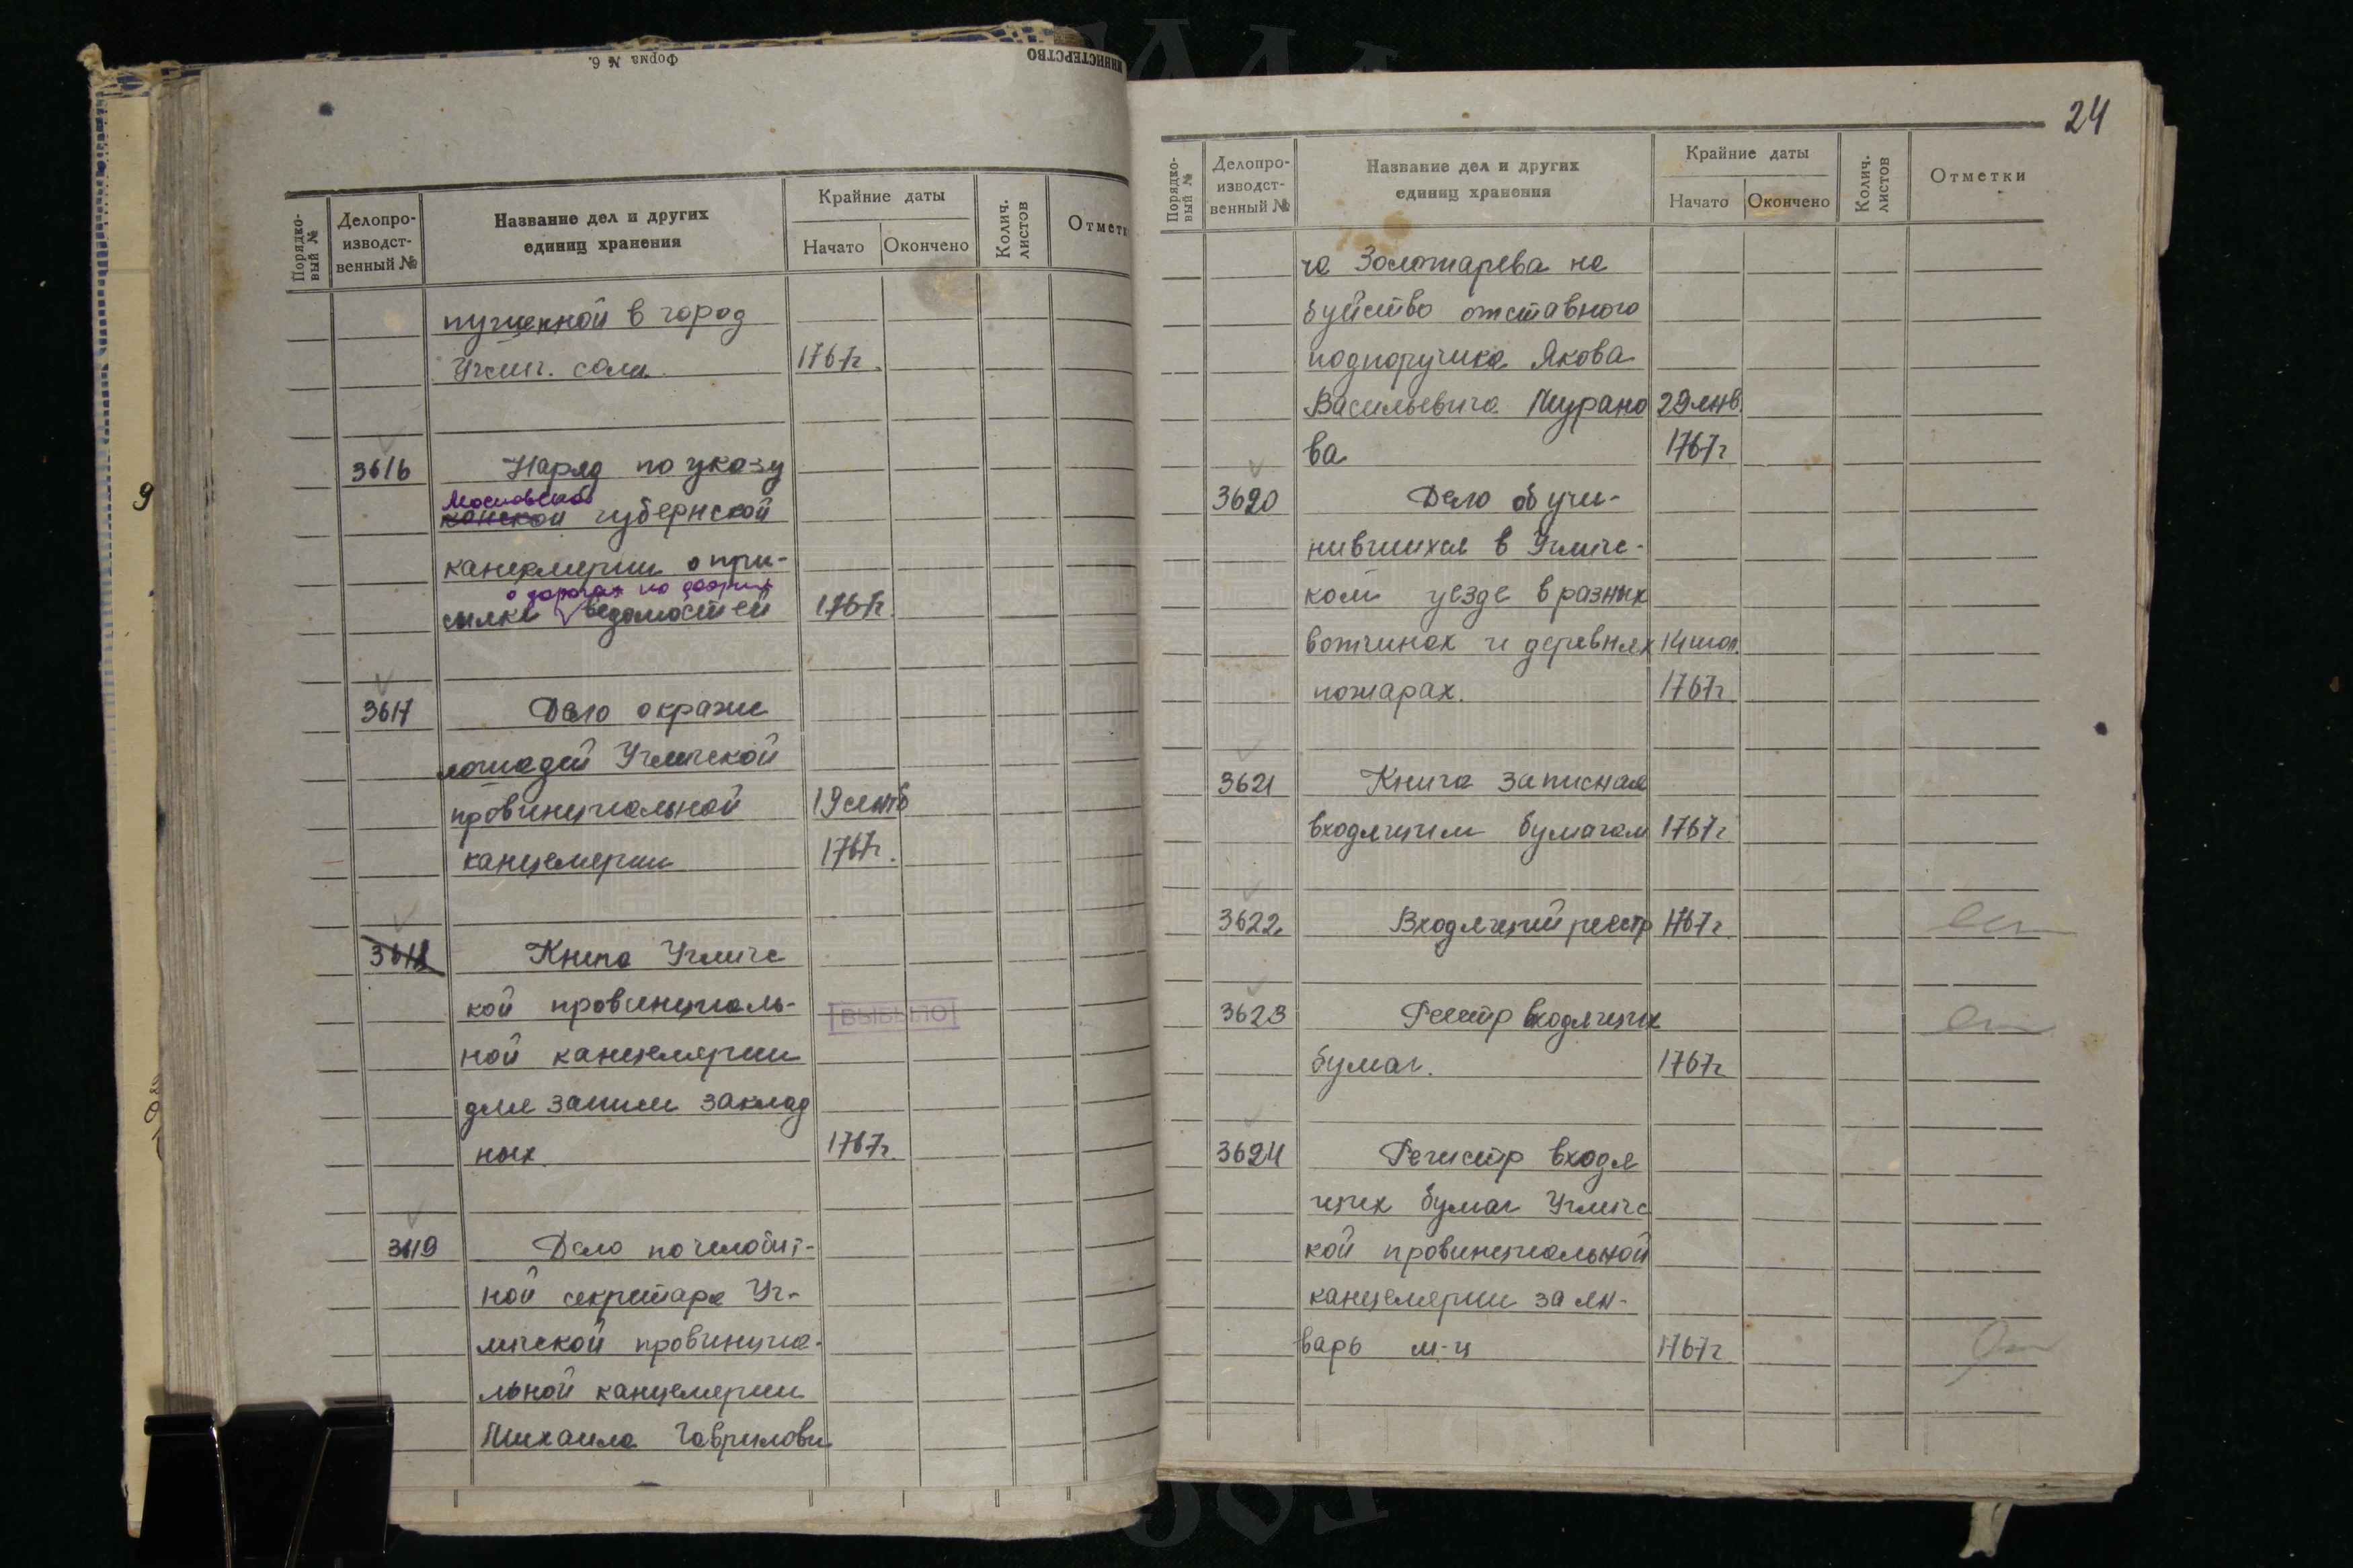 Форма № 6.
МИНИСТЕРСТВО
Порядко-
вый №
Делопро-
изводст-
венный №
Название дел и других
единиц хранения
Крайние даты
Начато
Окончено
Колич.
листов
Отметк
пущенной в город
Углич. соли. 1767г.
3616 Наряд по указу
Московской
канской губернской
канцелярии о при-
о дорогах по
сылке ведомостей 1767г.
3617 Дело о краже
лошадей Угличской
провинциальной 19 сентб
канцелярии 1767г.
3618 Книга Угличс
кой провинциаль-
ВЫБЫЛО
ной канцелярии
для записи заклад
ных. 1767г.
3619 Дело по челобит-
ной секретаря Уг-
личской провинциа-
льной канцелярии
Михаила Гаврилови
24
Порядко-
вый №
Делопро-
изводст-
венный №
Название дел и других
единиц хранения
Крайние даты
Начато
Окончено
Колич.
листов
Отметки
ча Золотарева на
буйство отставного
подпоручика Якова
Васильевича Мурано 29 янв.
ва 1767г
3620 Дело об учи-
нившихся в Угличс-
ком уезде в разных
вотчинах и деревнях 14
пожарах. 1767г
3621 Книга записная
входящим бумагам 1767г
3622 Входящий реестр 1767г
3623 Реестр входящих
бумаг. 1767г
3624 Регистр входя
щих бумаг Угличс
кой провинциальной
канцелярии за ян-
варь м-ц 1767г